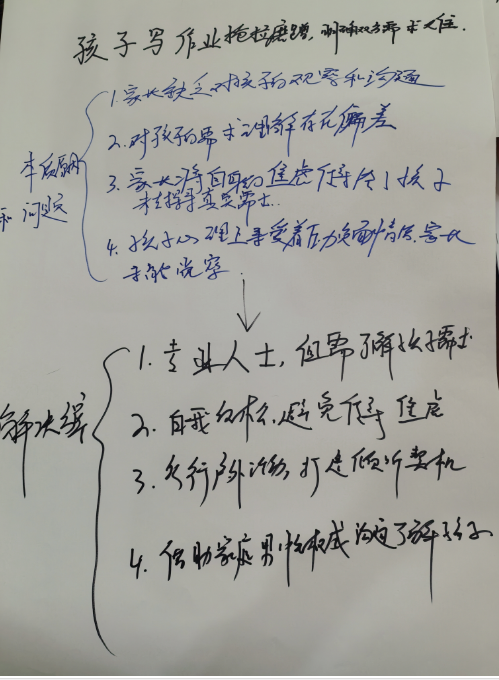 孩子写作业拖拉磨蹭，明确双方需求人住.
1.家长缺乏对孩子的观察和沟通
2.对孩子的需求理解存在偏差
本质原因
和问题
3.家长将自身的焦虑传导给了孩子
未探寻真实需求.
4.孩子心理上承受着压力负面情绪.家长
未能觉察.
1.专业人士，但需了解孩子需求
2.自我 避免传导焦虑
3. 户外活动，打造倾听契机
解决
4.借助家庭男性权威沟通了解孩子